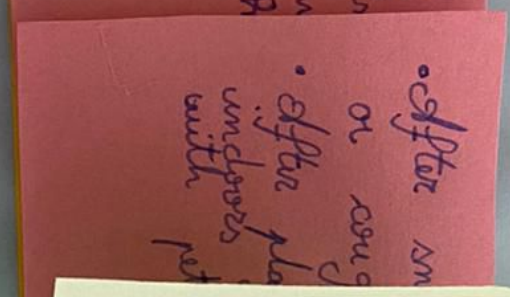 • After sn
or coug
• After pla
indoors
with pet